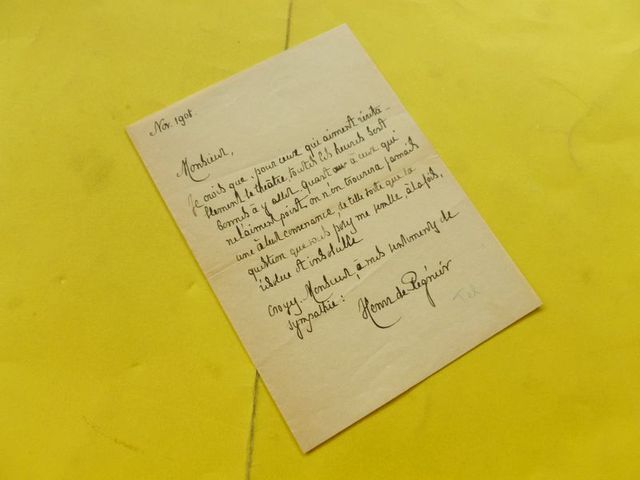 Nov. 1908.
Monsieur,
Je crois que, pour ceux qui aiment vérita-
blement le théâtre, toutes les heures sont
bonnes à y aller. Quant aux à ceux qui
ne l'aiment point on n'en trouvera jamais
une à leur convenance, de telle sorte que la
question que vous posez me semble, à la fois,
résolue et insoluble
Croyez, Monsieur, à mes sentiments de
sympathie :
Henri de Régnier